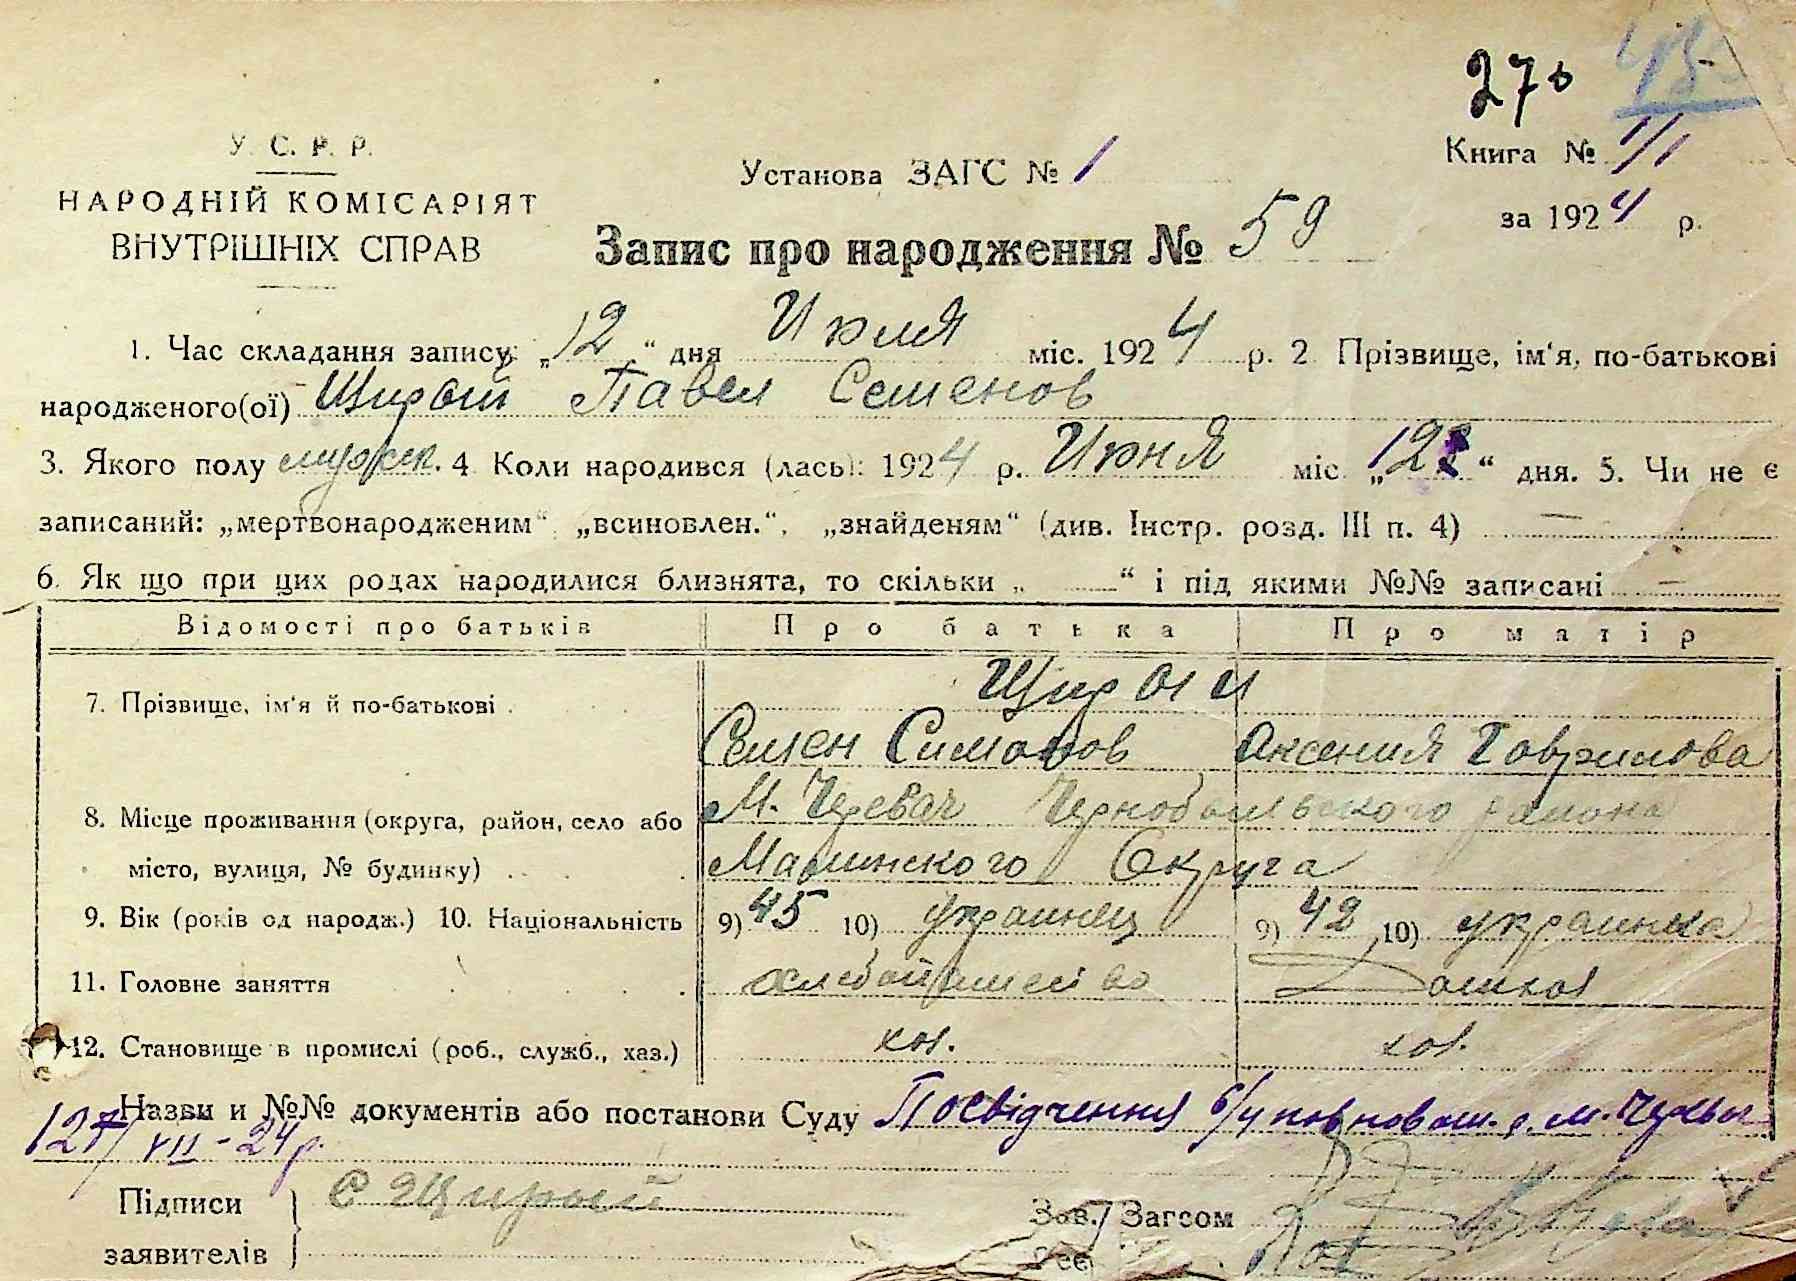 27
У. С. Р. Р.
НАРОДНІЙ КОМІСАРІЯТ
ВНУТРІШНІХ СПРАВ
Установа ЗАГС № 1
Книга № 1/1
за 1924 р.
Запис про народження № 59
1. Час складання запису: „12“ дня Июля міс. 1924 р. 2 Прізвище, ім‘я, по-батькові
народженого(ої) Щирый Павел Семенов
3. Якого полу мужск. 4 Коли народився (лась): 1924 р. Июня міс. „12 “ дня. 5. Чи не є
записаний: „мертвонародженим“, „всиновлен.“, „знайденям“ (див. Інстр. розд. III п. 4) —
6. Як що при цих родах народилися близнята, то скільки „ — “ і під якими №№ записані —
Відомості про батьків Про батька Про матір
7. Прізвище, ім‘я й по-батькові Щирыи
Семен Симонов Аксения Гаврилова
8. Місце проживання (округа, район, село або М. Черевач Чернобыльского района
місто, вулиця, № будинку) Малинского Округа
9. Вік (років од народж.) 10. Національність 9) 45 10) украинец 9) 42 10) украинка
11. Головне заняття хлебопашество Домхоз
12. Становище в промислі (роб., служб., хаз.) хоз. хоз.
Назви и №№ документів або постанови Суду Посвідчення м.
127/VII-24р.
Підписи С Щирый
заявителів
Зав. Загсом